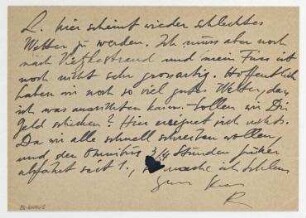 L. hier scheint wieder schlechtes
Wetter zu werden. Ich muss aber noch
nach und mein Fuss ist
noch nicht sehr grossartig. Hoffentlich
haben wir noch so viel gutes Wetter, dass
ich was ausrichten kann. Sollen wir Dir
Geld schicken? Hier ereignet sich nichts.
Da wir alle schnell schreiben wollen
und der Omnibus 3/4 Stunden früher
abfährt statt 1, mache ich Schluss.
R